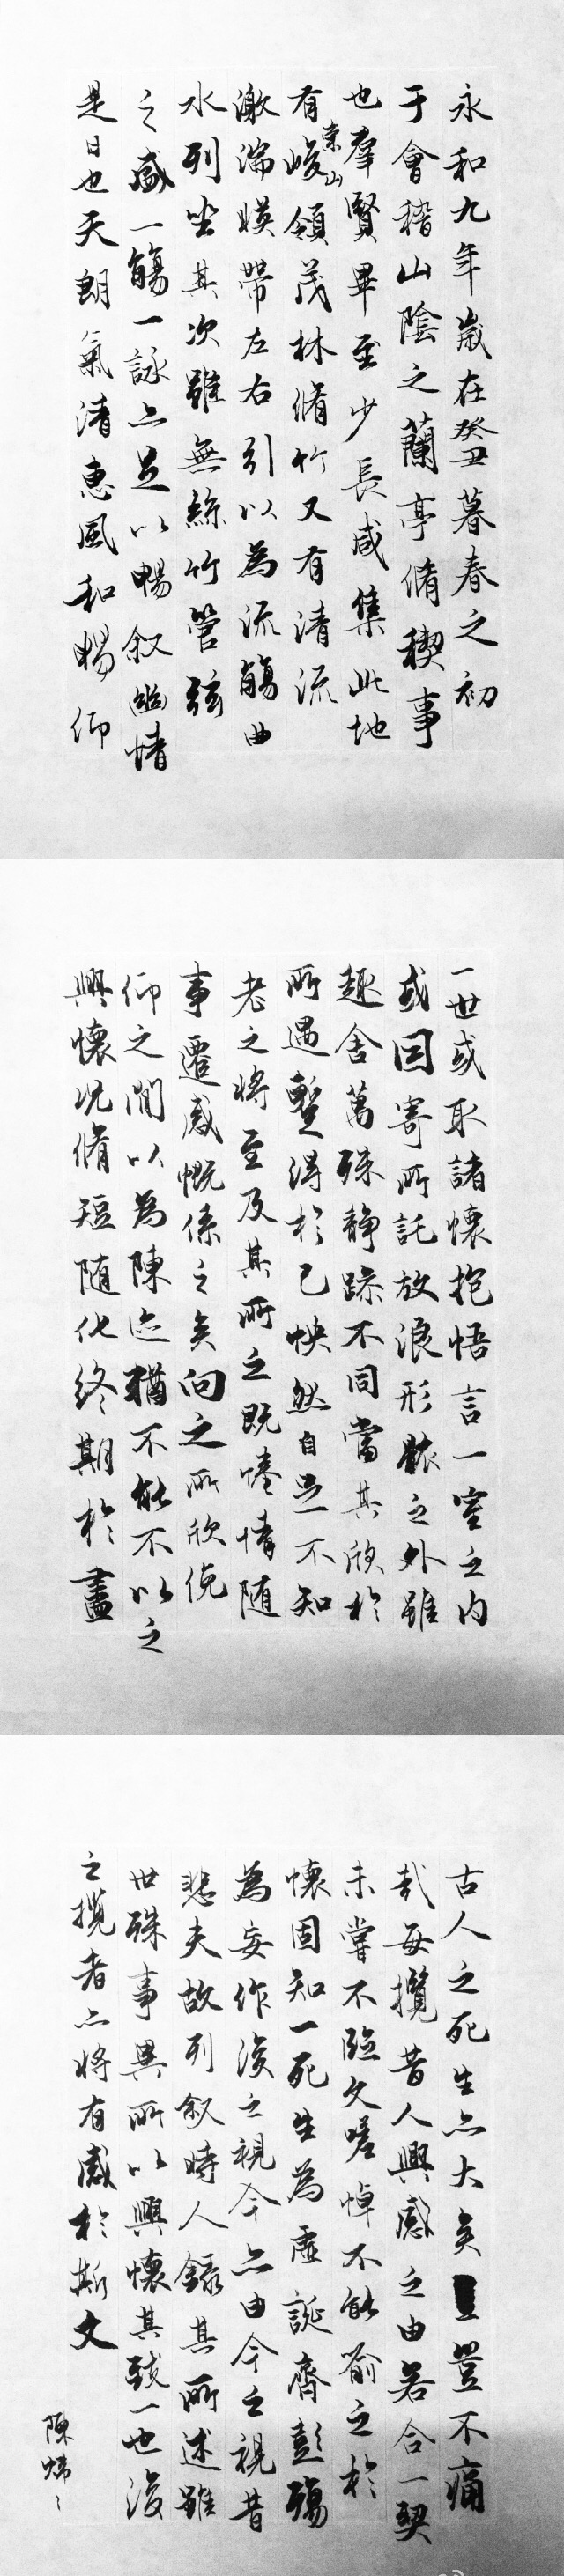 永和九年歲在癸丑暮春之初
于會稽山陰之蘭亭脩稧事
也羣賢畢至少長咸集此地
有崇山峻領茂林脩竹又有清流
激湍暎帶左右引以為流觴曲
水列坐其次雖無絲竹管弦
之盛一觴一詠亦足以暢叙幽情
是日也天朗氣清惠風和暢仰
一世或取諸懷抱悟言一室之內
或因寄所託放浪形骸之外雖
趣舍萬殊靜躁不同當其欣於
所遇蹔得於己怏然自足不知
老之將至及其所之既惓情隨
事遷感慨係之矣向之所欣俛
仰之閒以為陳迹猶不能不以之
興懷況脩短隨化終期於盡
古人云死生亦大矣豈不痛
哉每攬昔人興感之由若合一契
未嘗不臨文嗟悼不能喻之於
懷固知一死生為虛誕齊彭殤
為妄作後之視今亦由今之視昔
悲夫故列叙時人錄其所述雖
世殊事異所以興懷其致一也後
之攬者亦將有感於斯文
陳